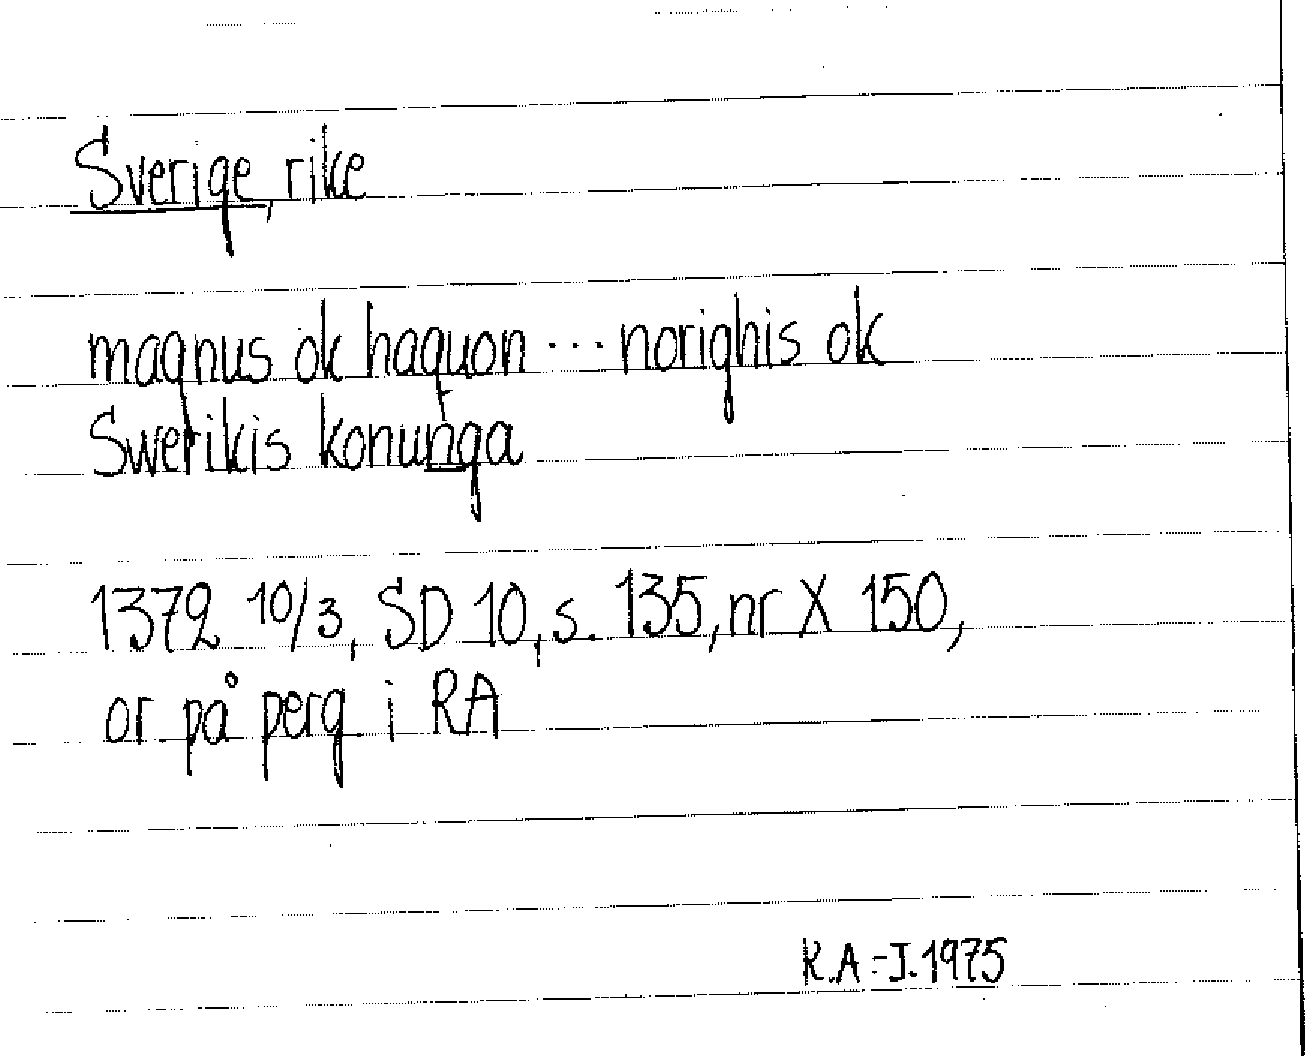 Sverige, rike
magnus ok haquon ... norighis ok
Swerikis konunga
1372 10/3, SD 10, s. 135, nr X 150,
or på perg i RA
K.A-J. 1975